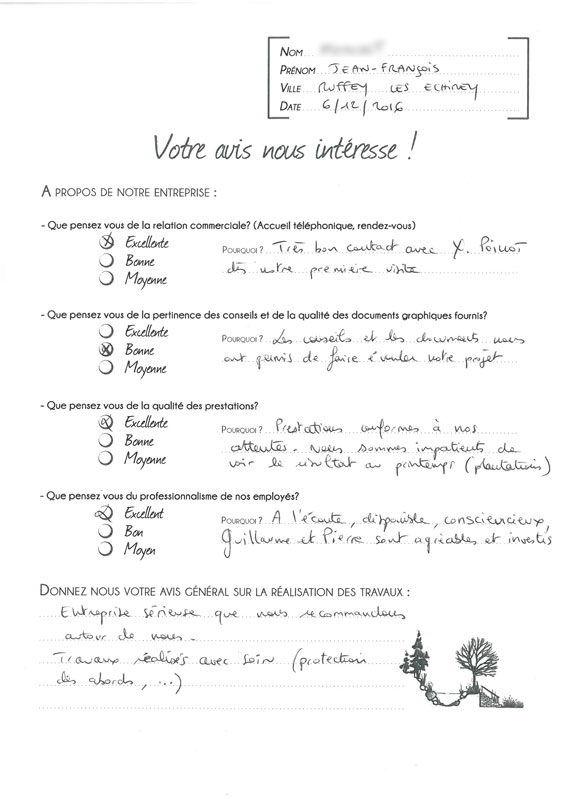 NOM
PRÉNOM JEAN-FRANÇOIS
VILLE RUFFEY LES ECHIREY
DATE 6/12/2016
Votre avis nous intéresse !
A PROPOS DE NOTRE ENTREPRISE :
- Que pensez vous de la relation commerciale? (Accueil téléphonique, rendez-vous)
Excellente
POURQUOI ? Très bon contact avec X. Poinsot
Bonne
dès notre première visite
Moyenne
- Que pensez vous de la pertinence des conseils et de la qualité des documents graphiques fournis?
Excellente
POURQUOI ? Les conseils et les documents nous
Bonne
ont permis de faire évoluer notre projet
Moyenne
- Que pensez vous de la qualité des prestations?
Excellente
POURQUOI ? Prestations conformes à nos
Bonne
attentes. Nous sommes impatients de
Moyenne
voir le résultat au printemps (plantations)
- Que pensez vous du professionnalisme de nos employés?
Excellent
POURQUOI ? A l'écoute, disponible, consciencieux,
Bon
Guillaume et Pierre sont agréables et investis
Moyen
DONNEZ NOUS VOTRE AVIS GÉNÉRAL SUR LA RÉALISATION DES TRAVAUX :
Entreprise sérieuse que nous recommandons
autour de nous.
Travaux réalisés avec soin (protection
des abords, ...)